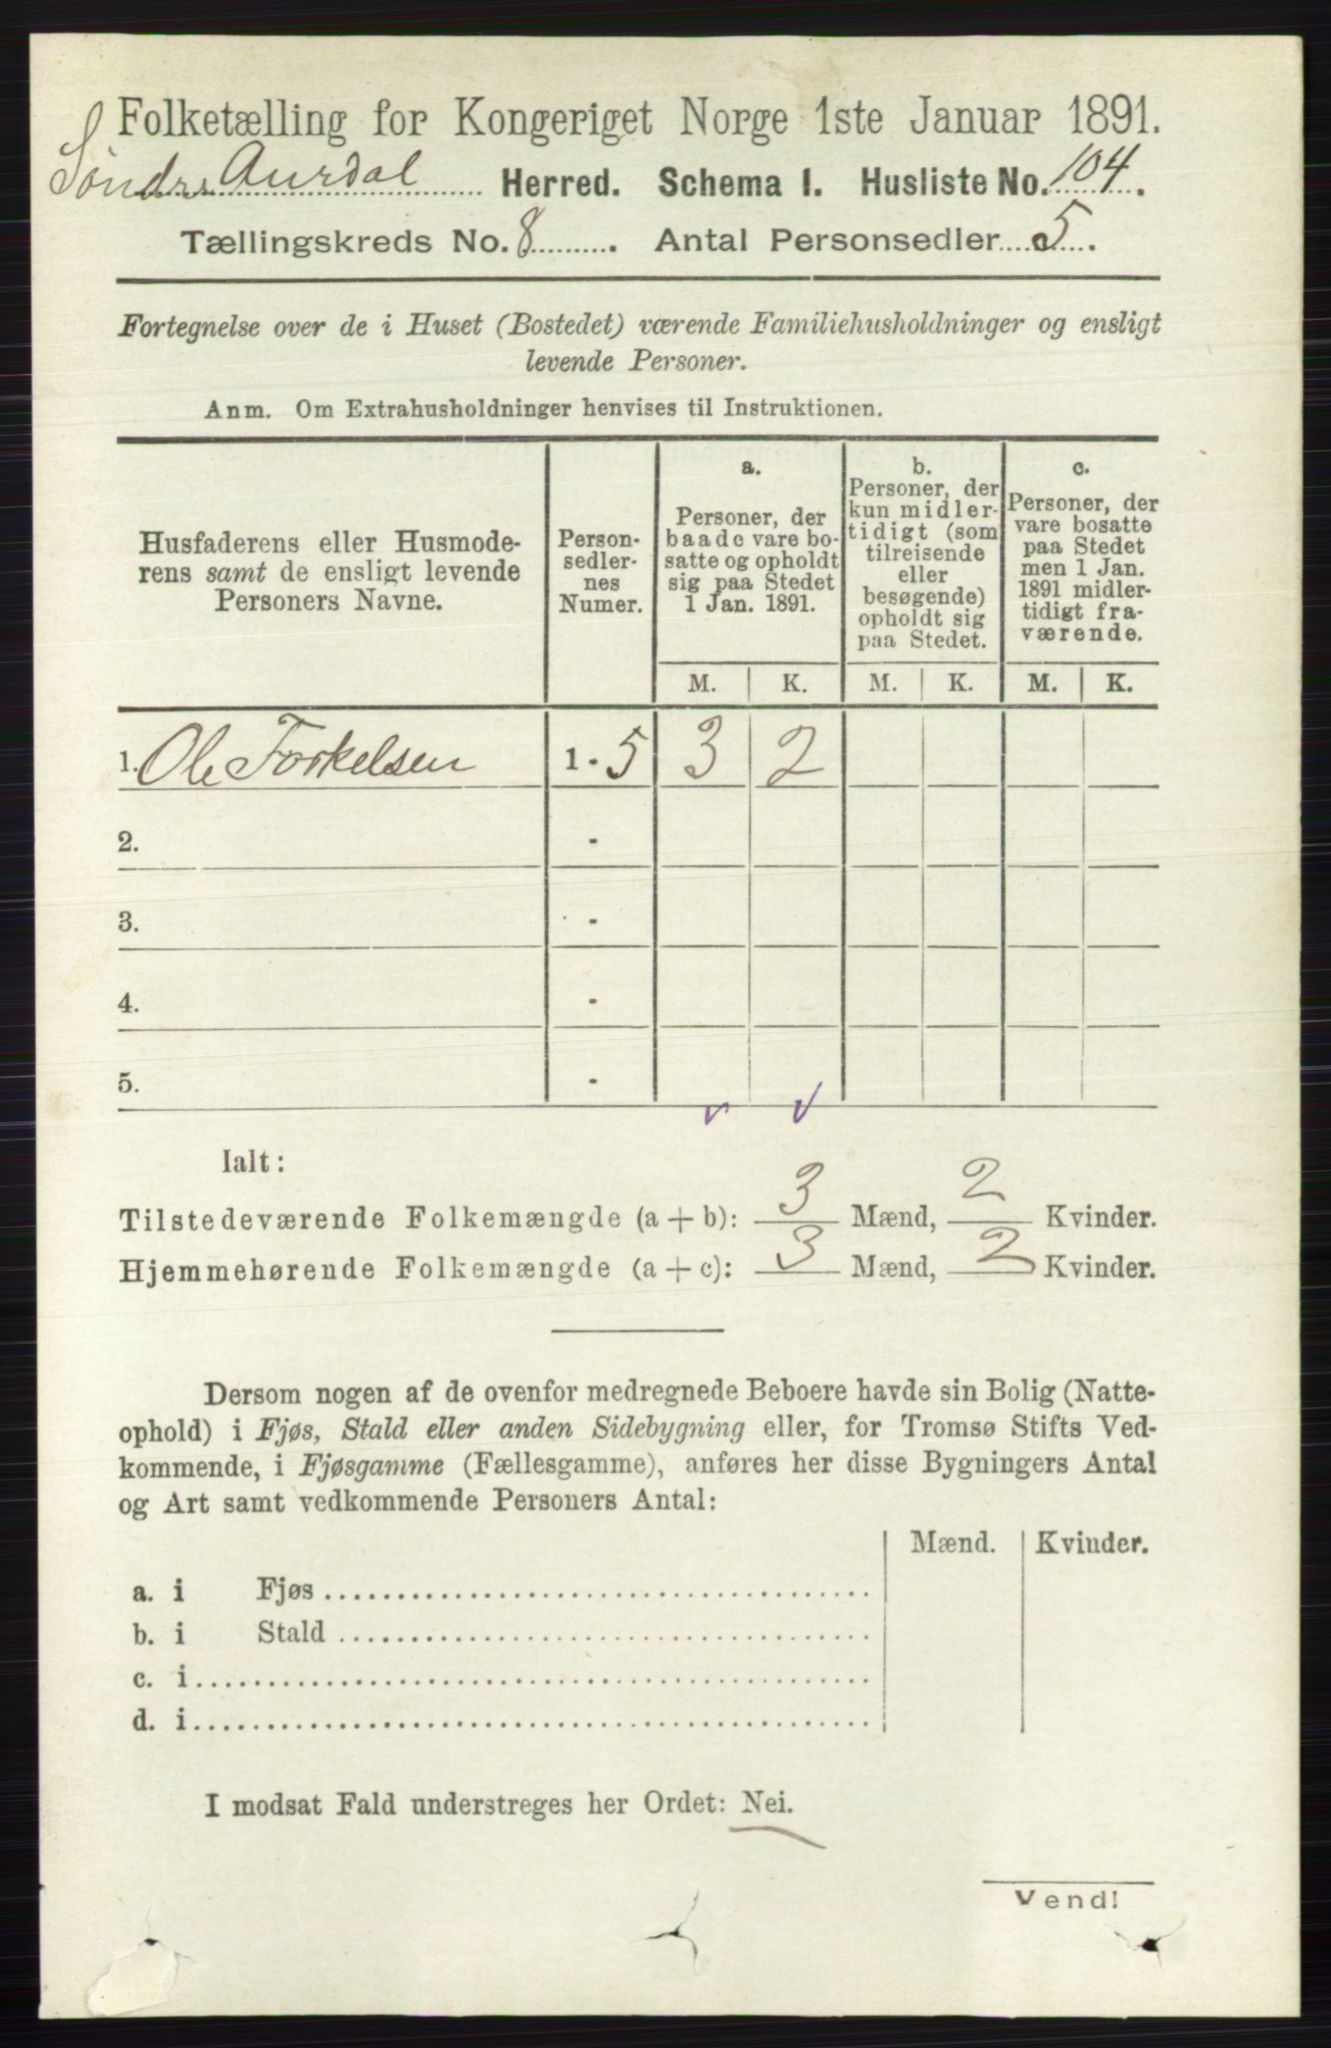 Folketælling for Kongeriget Norge 1ste Januar 1891.
Søndre Aurdal Herred. Schema I. Husliste No. 104.
Tællingskreds No. 8. Antal Personsedler 5.
Fortegnelse over de i Huset (Bostedet) værende Familiehusholdninger og ensligt
levende Personer.
Anm. Om Extrahusholdninger henvises til Instruktionen.
Husfaderens eller Husmode-
rens samt de ensligt levende
Personers Navne.
Person-
sedler-
nes
Numer.
a.
Personer, der
baade vare bo-
satte og opholdt
sig paa Stedet
1 Jan. 1891.
b.
Personer, der
kun midler-
tidigt (som
tilreisende
eller
besøgende)
opholdt sig
paa Stedet.
c.
Personer, der
vare bosatte
paa Stedet
men 1 Jan.
1891 midler-
tidigt fra-
værende.
M. K. M. K. M. K.
1. Ole Torkelsen 1 - 5 3 2
2. -
3. -
4. -
5. -
Ialt:
Tilstedeværende Folkemængde (a + b): 3 Mænd, 2 Kvinder.
Hjemmehørende Folkemængde (a + c): 3 Mænd, 2 Kvinder.
Dersom nogen af de ovenfor medregnede Beboere havde sin Bolig (Natte-
ophold) i Fjøs, Stald eller anden Sidebygning eller, for Tromsø Stifts Ved-
kommende, i Fjøsgamme (Fællesgamme), anføres her disse Bygningers Antal
og Art samt vedkommende Personers Antal:
Mænd. Kvinder.
a. i Fjøs
b. i Stald
c. i
d. i
I modsat Fald understreges her Ordet: Nei.
Vend!